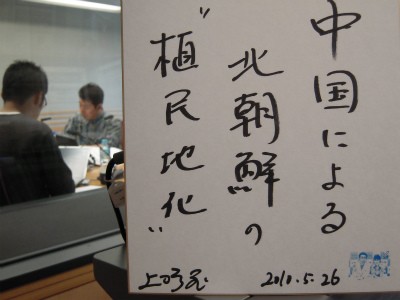 中国による
北朝鮮の
"植民地化"
2010.5.26